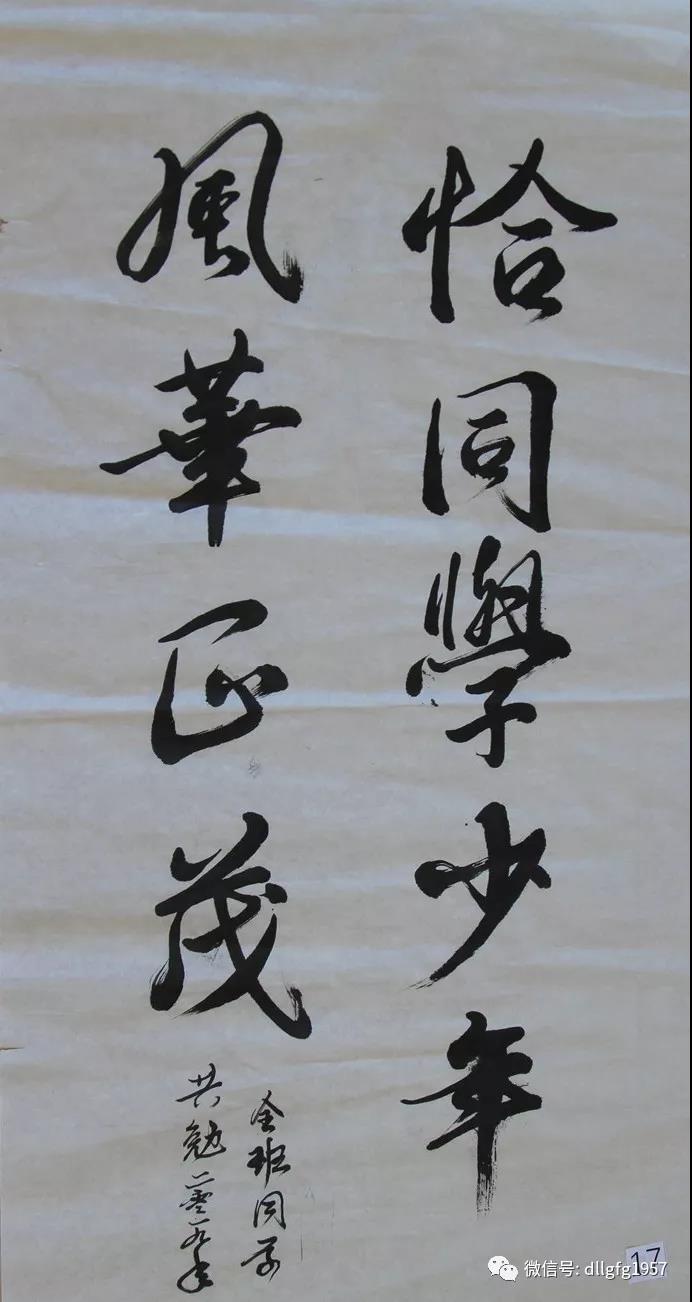 恰同學少年
風華正茂
全班同学
共勉 二零一九年
17
微信号: dllgfg1957